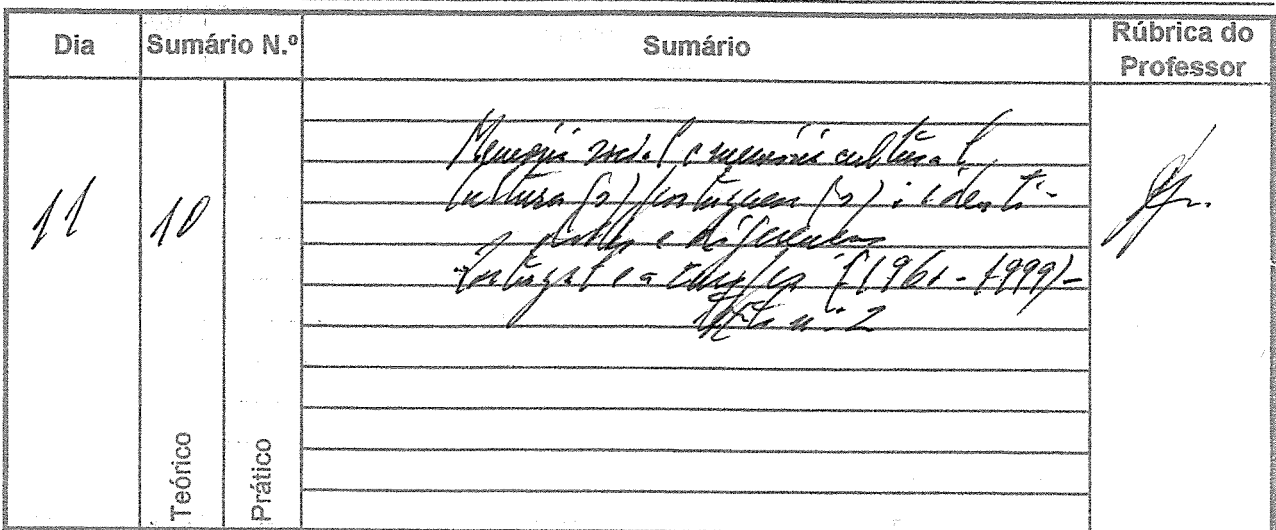 Dia Sumário N.º Sumário Rúbrica do Professor
11 10
Memória social e memória cultural
Cultura(s) portuguesa(s): identi-
dades e diferenças
Portugal e a Europa (1961-1999)-
Texto n.º 2
Teórico Prático